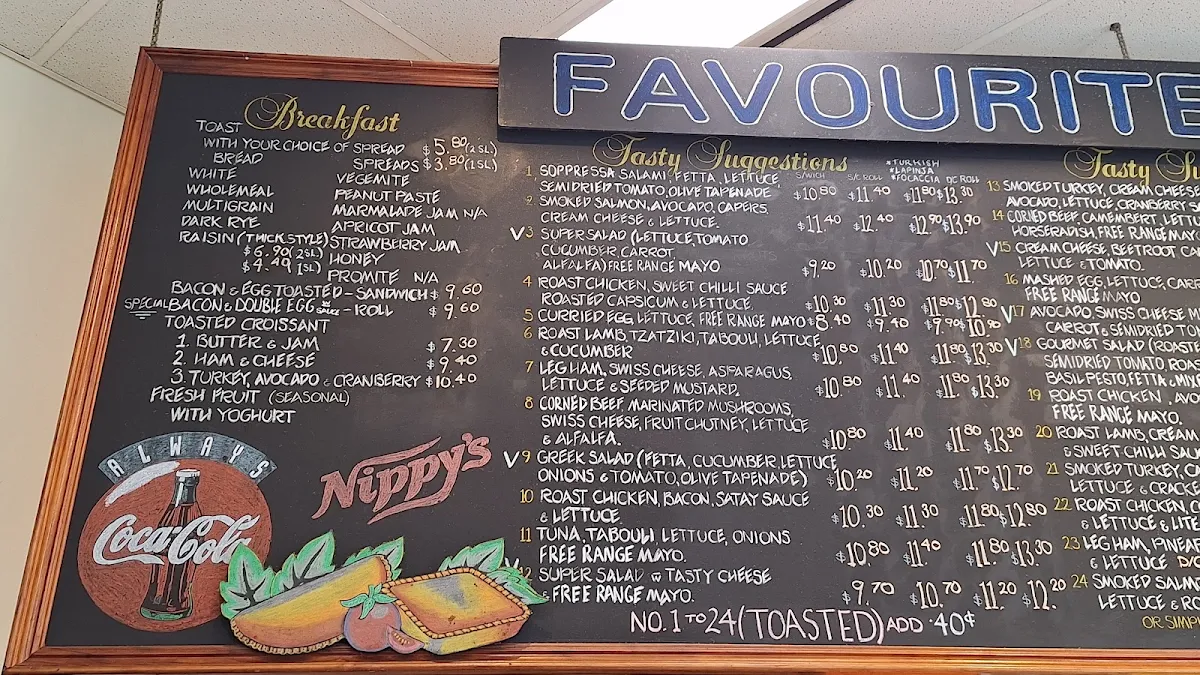 FAVOURITE
Breakfast
TOAST
WITH YOUR CHOICE OF SPREAD $5.80 (2SL)
BREAD SPREADS $3.80 (1SL)
WHITE VEGEMITE
WHOLEMEAL PEANUT PASTE
MULTIGRAIN MARMALADE JAM N/A
DARK RYE APRICOT JAM
RAISIN (THICK STYLE) STRAWBERRY JAM
$6.90 (2SL) HONEY
$4.49 (1SL)
PROMITE N/A
BACON & EGG TOASTED - SANDWICH $9.60
SPECIAL BACON & DOUBLE EGG & SAUCE - ROLL $9.60
TOASTED CROISSANT
1. BUTTER & JAM $7.30
2. HAM & CHEESE $9.40
3. TURKEY, AVOCADO & CRANBERRY $10.40
FRESH FRUIT (SEASONAL)
WITH YOGHURT
ALWAYS
Coca-Cola
Nippy's
Tasty Suggestions
S/WICH S/C ROLL *TURKISH *LAPINJA *FOCACCIA DC ROLL
1 SOPPRESSA SALAMI, FETTA, LETTUCE
SEMIDRIED TOMATO, OLIVE TAPENADE $10.80 $11.40 $11.80 $13.30
2 SMOKED SALMON, AVOCADO, CAPERS,
CREAM CHEESE & LETTUCE. $11.40 $12.40 $12.90 $13.90
V 3 SUPER SALAD (LETTUCE, TOMATO
CUCUMBER, CARROT,
ALFALFA) FREE RANGE MAYO $9.20 $10.20 $10.70 $11.70
4 ROAST CHICKEN, SWEET CHILLI SAUCE
ROASTED CAPSICUM & LETTUCE $10.30 $11.30 $11.80 $12.80
5 CURRIED EGG, LETTUCE, FREE RANGE MAYO $8.40 $9.40 $9.90 $10.90
6 ROAST LAMB, TZATZIKI, TABOULI, LETTUCE
& CUCUMBER $10.80 $11.40 $11.80 $13.30
7 LEG HAM, SWISS CHEESE, ASPARAGUS,
LETTUCE & SEEDED MUSTARD. $10.80 $11.40 $11.80 $13.30
8 CORNED BEEF, MARINATED MUSHROOMS,
SWISS CHEESE, FRUIT CHUTNEY, LETTUCE
& ALFALFA. $10.80 $11.40 $11.80 $13.30
V 9 GREEK SALAD (FETTA, CUCUMBER, LETTUCE
ONIONS & TOMATO, OLIVE TAPENADE) $10.20 $11.20 $11.70 $12.70
10 ROAST CHICKEN, BACON, SATAY SAUCE
& LETTUCE. $10.30 $11.30 $11.80 $12.80
11 TUNA, TABOULI LETTUCE, ONIONS
FREE RANGE MAYO. $10.80 $11.40 $11.80 $13.30
12 SUPER SALAD W TASTY CHEESE
& FREE RANGE MAYO. $9.70 $10.70 $11.20 $12.20
NO. 1 TO 24 (TOASTED) ADD .40¢
Tasty Su
13 SMOKED TURKEY, CREAM CHEES
AVOCADO, LETTUCE, CRANBERRY S
14 CORNED BEEF, CAMEMBERT, LETT
HORSERADISH, FREE RANGE MAYO
V 15 CREAM CHEESE, BEETROOT, CA
LETTUCE & TOMATO.
16 MASHED EGG, LETTUCE, CAR
FREE RANGE MAYO
V 17 AVOCADO, SWISS CHEESE M
CARROT & SEMIDRIED TO
V 18 GOURMET SALAD (ROASTE
SEMIDRIED TOMATO ROA
BASIL PESTO, FETTA & MIX
19 ROAST CHICKEN, AVO
FREE RANGE MAYO.
20 ROAST LAMB, CREAM
& SWEET CHILLI SAU
21 SMOKED TURKEY, C
LETTUCE & CRACKE
22 ROAST CHICKEN, C
& LETTUCE & LITE
23 LEG HAM, PINEAP
LETTUCE
24 SMOKED SALMO
LETTUCE & RO
OR SIMPL